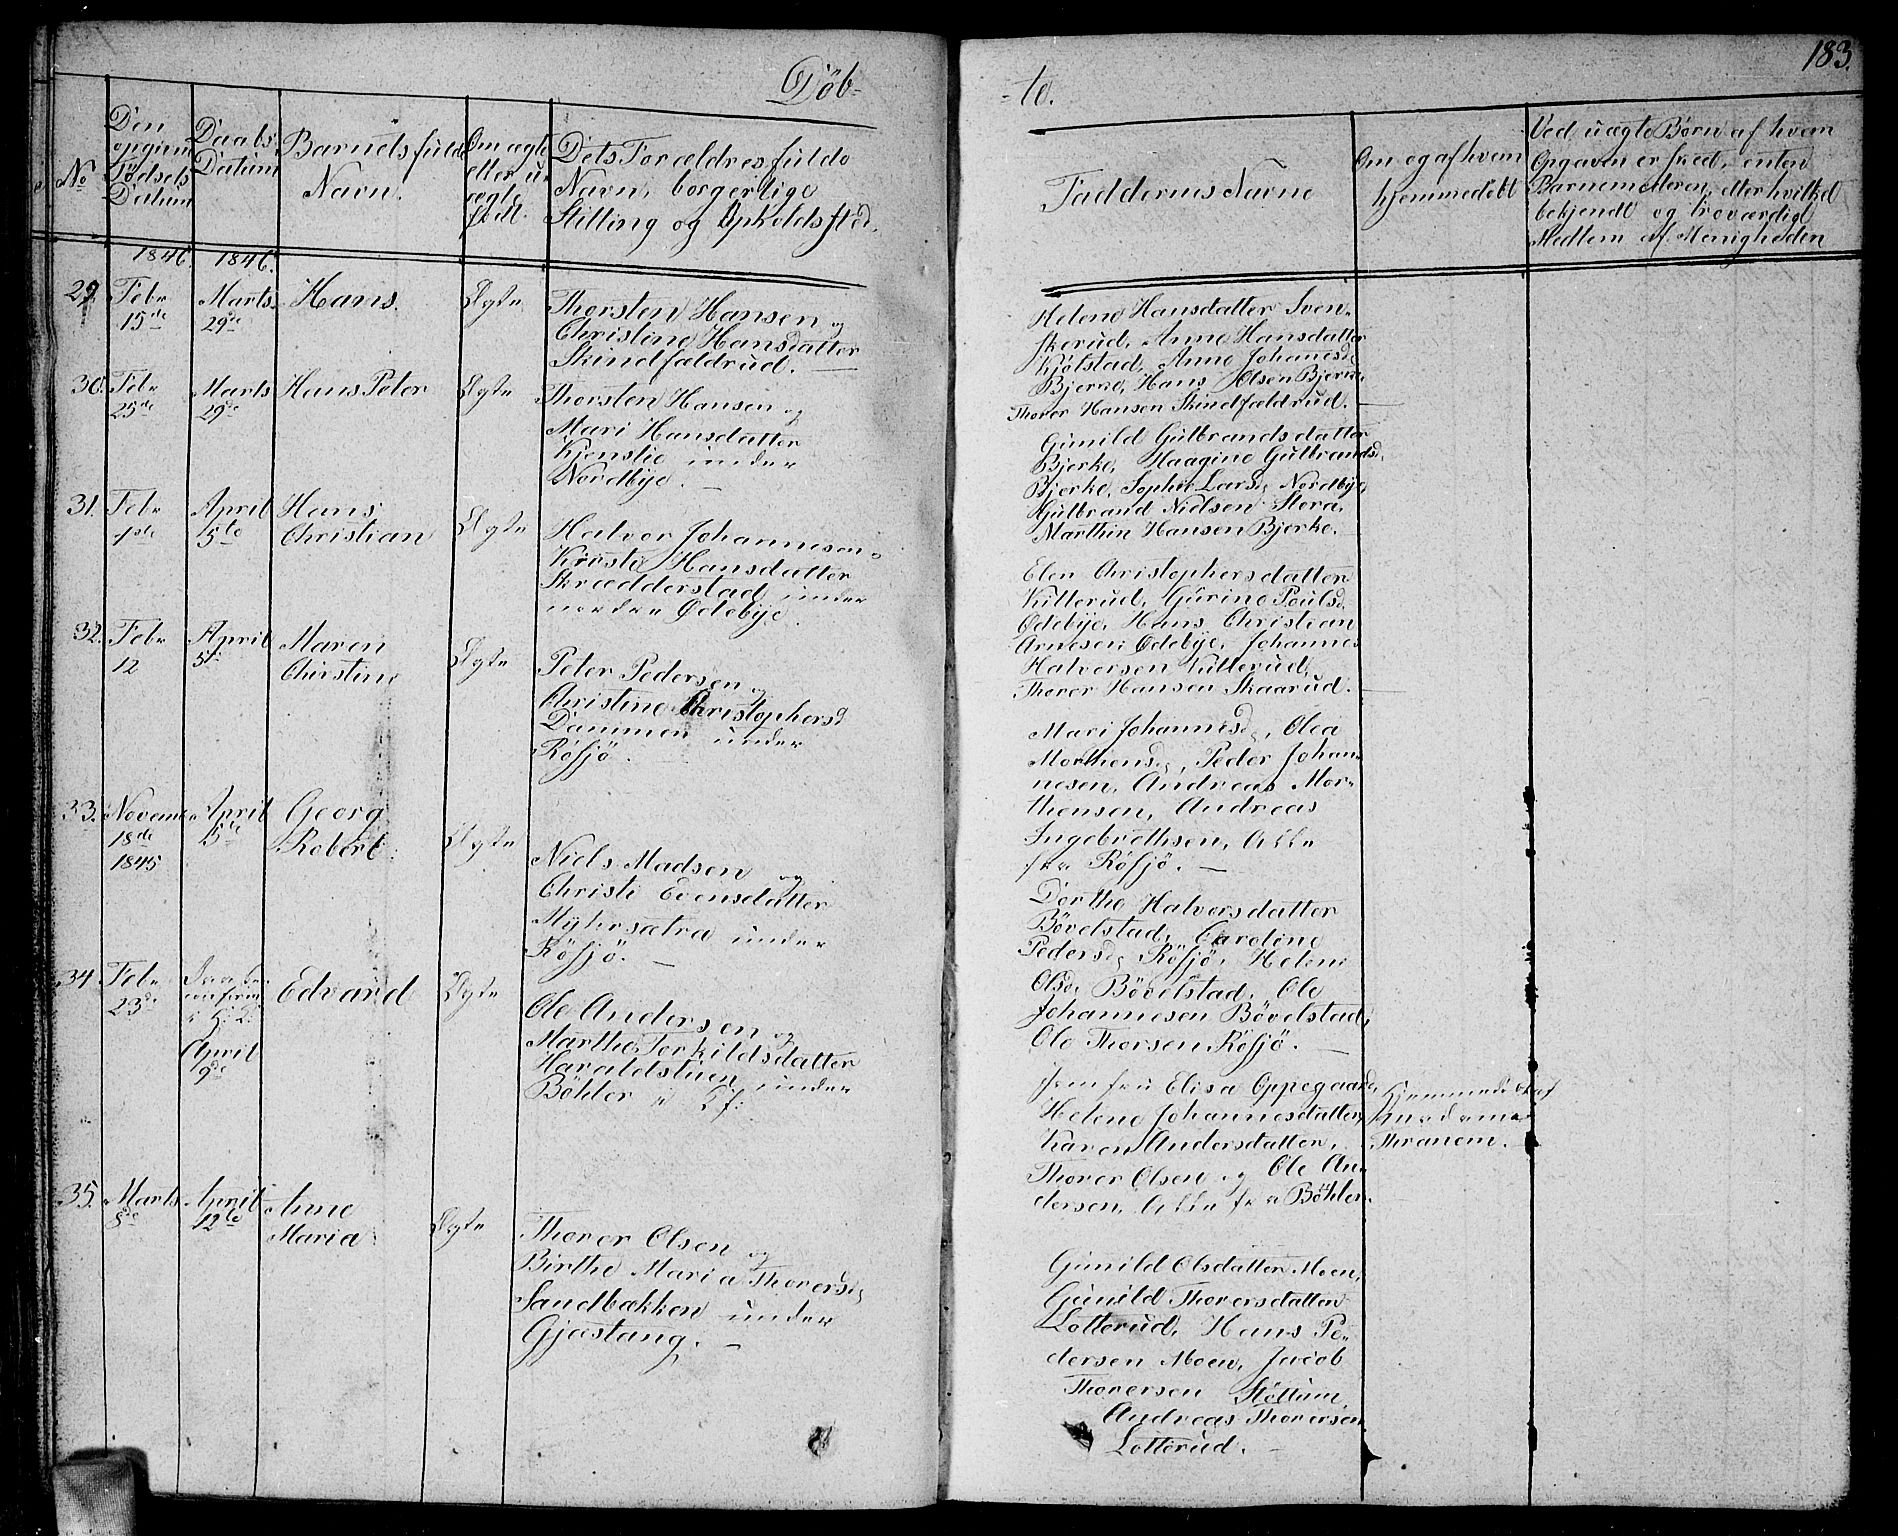 183.
Döb-
-te.
No
Den
opgivne
Fødsels
Datum
Daabs
Datum
Barnets fulde
Navn.
Om ægte
eller u-
ægte
født.
Dets Forældres fulde
Navn, borgerlige
Stilling og Opholdssted.
Faddernes Navne
Om og af hvem
hjemmedøbt
Ved uægte Børn af hvem
Opgaven er skeed, enten
Barnemoderen, eller hvilket
bekjendt og troværdigt
Medlem af Menigheden
1846. 1846.
29. Febr
15de
Marts
29de
Hans.
Ægte
Thorsten Hansen og
Christine Hansdatter
Skindfældrud.
Helene Hansdatter Sven-
skerud, Anne Hansdatter
Kjølstad, Anne Johanesd.
Bjerke, Hans Olsen Bjerke,
Thorer Hansen Skindfældrud.
30. Febr
25de
Marts
29de
Hans Peter
Ægte
Thorsten Hansen og
Mari Hansdatter
Kjenslie under
Nordbye.
Gunild Gulbrandsdatter
Bjerke, Haagine Gulbrandsd.
Bjerke, Sophie Larsd. Nordbye,
Gulbrand Nielsen Stora,
Marthin Hansen Bjerke.
31. Febr
1ste
April
5te
Hans
Christian
Ægte
Halvor Johannesen
Kirste Hansdatter
Skrædderstad under
nordre Ødebye.
Elen Christophersdatter
Kitterud, Gurine Poulsd.
Ødebye, Hans Christian
Arnesen Ødebye, Johannes
Halvorsen Kitterud,
Thorer Hansen Skaarud.
32. Febr
12
April
5te
Maren
Christine
Ægte
Peter Pedersen og
Christine Christophersd
Dammen under
Röfsjö.
Mari Johannesd., Olea
Morthensd., Peder Johan-
nesen, Andreas Mor-
thensen, Andreas
Ingebrethsen, Alle
fra Röfsjö.
33. Novemb
18de
1845
April
5te
Georg
Robert.
Ægte
Niels Madsen og
Christi Evensdatter
Myhrsætra under
Röfsjö.
Dorthe Halvorsdatter
Bövelstad, Caroline
Pedersd. Röfsjö, Helene
Olsd. Bövelstad, Ole
Johannesen Bövelstad,
Ole Thorsen Röfsjö.
34 Febr
23de
April
9de
Edvard
Ægte
Ole Andersen og
Marthe Torkildsdatter
Haraldstuen under
Böhler
Jomfru Elisa Oppegaard,
Helene Johannesdatter,
Karen Andersdatter,
Thorer Olsen og Ole An-
dersen, Alle fra Böhler.
Hjemmedöbt af
Madame
Thranem.
35. Marts
8de
April
12te
Anne
Maria
Ægte
Thorer Olsen og
Birthe Maria Thorersd.
Sandbækken under
Gjæstang.
Gunild Olsdatter Moen,
Gunild Thorersdatter
Lotterud, Hans Pe-
dersen Moen, Jacob
Thorersen Stöttum,
Andreas Thorersen
Lotterud.